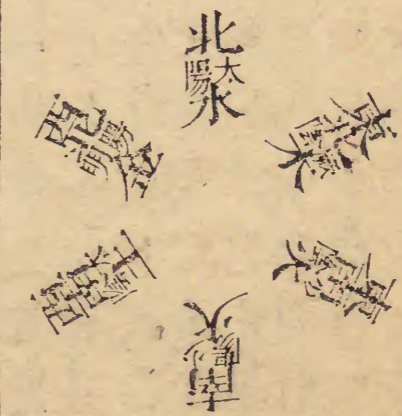 北太陽水
東北厥陰木
東南少陰火
南少陽火
西南太陰土
西北陽明金